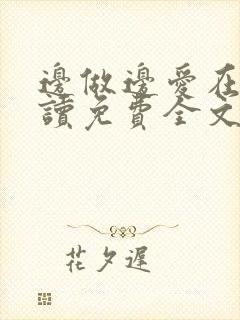 邊做邊愛在
讀免費全文
花夕遲